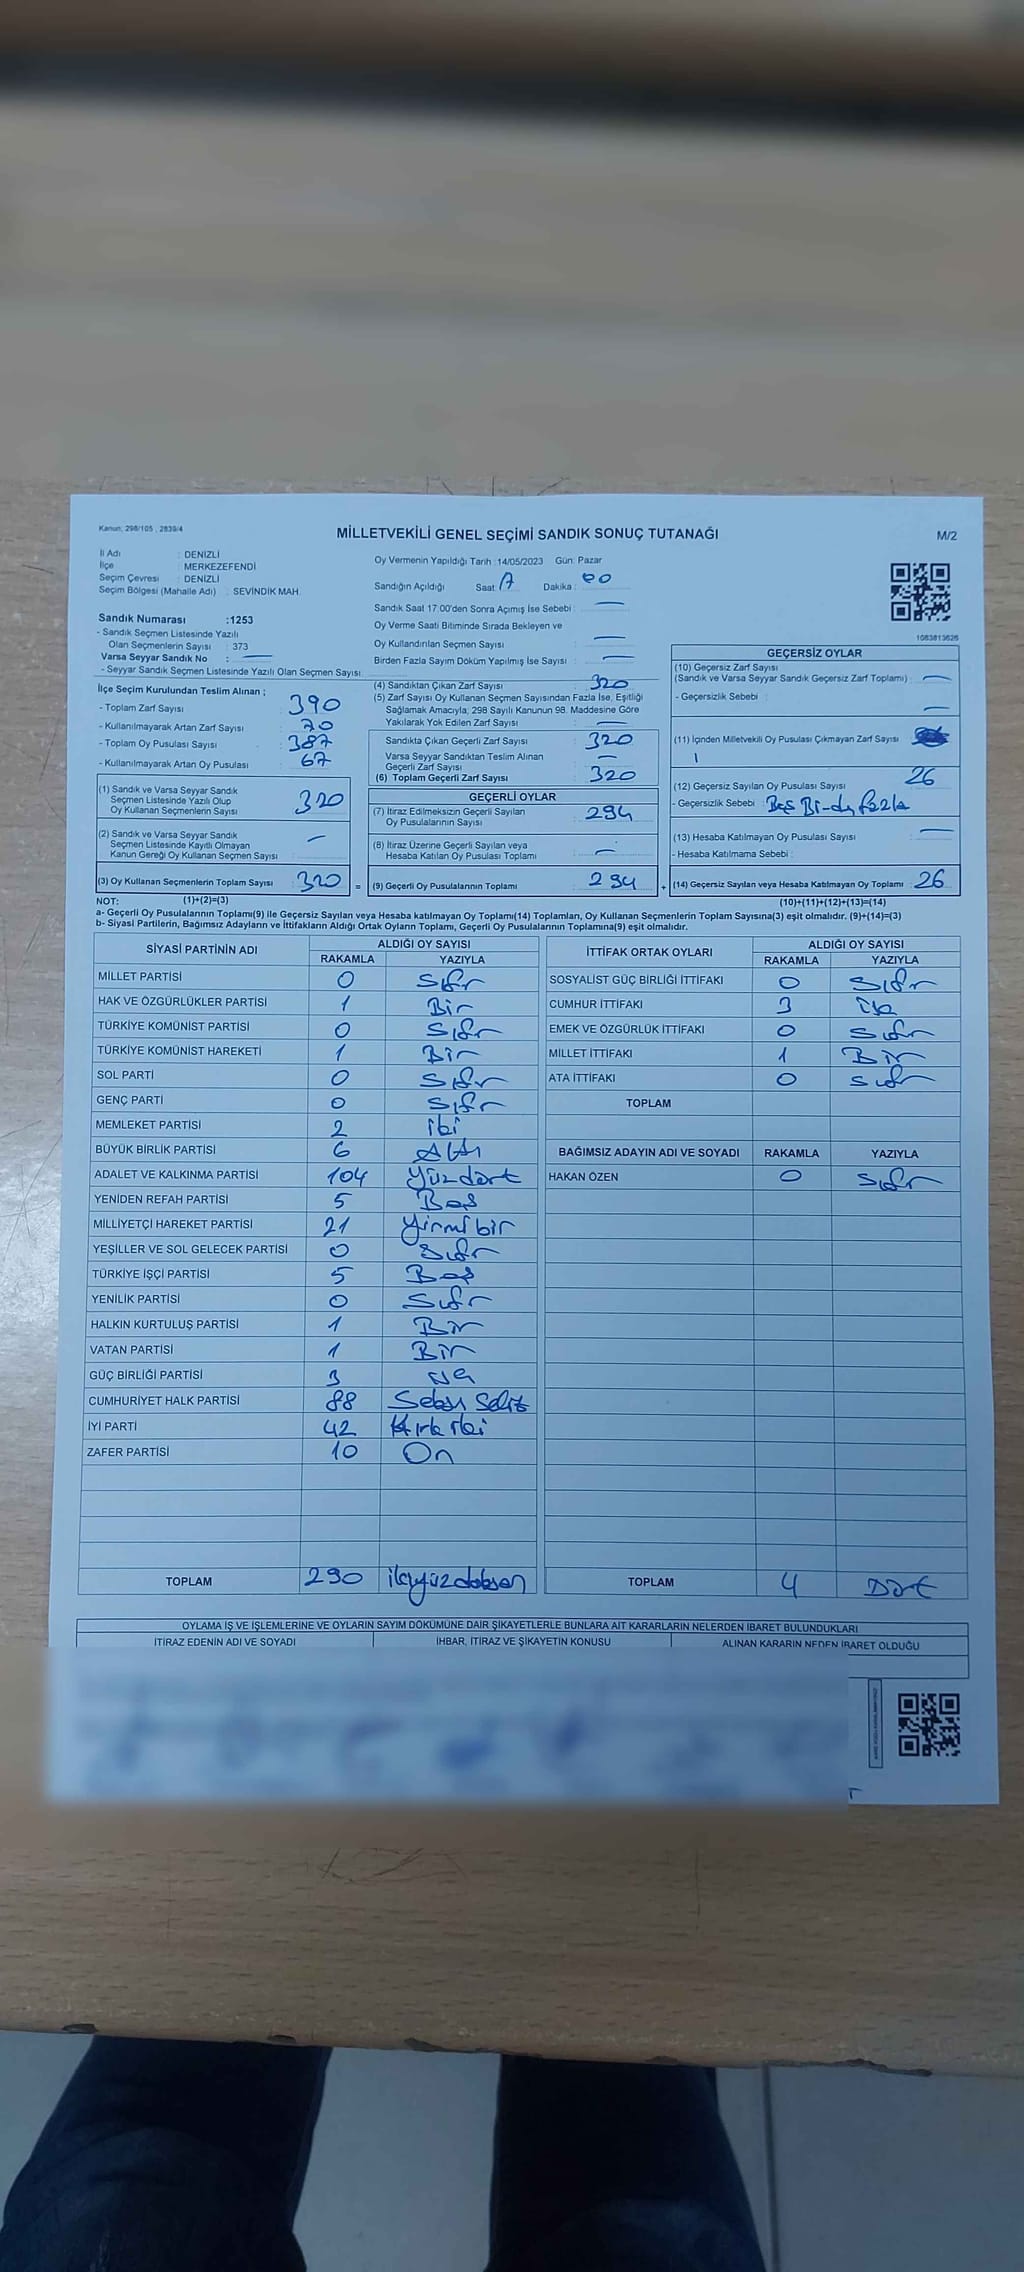 Kanun; 298/105 , 2839/4
MİLLETVEKİLİ GENEL SEÇİMİ SANDIK SONUÇ TUTANAĞI
M/2
İl Adı : DENİZLİ
İlçe : MERKEZEFENDİ
Seçim Çevresi : DENİZLİ
Seçim Bölgesi (Mahalle Adı) : SEVİNDİK MAH.
Sandık Numarası :1253
- Sandık Seçmen Listesinde Yazılı
Olan Seçmenlerin Sayısı : 373
Varsa Seyyar Sandık No : —
- Seyyar Sandık Seçmen Listesinde Yazılı Olan Seçmen Sayısı
Oy Vermenin Yapıldığı Tarih :14/05/2023 Gün: Pazar
Sandığın Açıldığı Saat : Dakika : 00
Sandık Saat 17:00'den Sonra Açımış İse Sebebi : —
Oy Verme Saati Bitiminde Sırada Bekleyen ve
Oy Kullandırılan Seçmen Sayısı : —
Birden Fazla Sayım Döküm Yapılmış İse Sayısı : —
1083813626
İlçe Seçim Kurulundan Teslim Alınan ;
- Toplam Zarf Sayısı : 390
- Kullanılmayarak Artan Zarf Sayısı : 70
- Toplam Oy Pusulası Sayısı : 387
- Kullanılmayarak Artan Oy Pusulası : 67
(1) Sandık ve Varsa Seyyar Sandık
Seçmen Listesinde Yazılı Olup
Oy Kullanan Seçmenlerin Sayısı : 320
(2) Sandık ve Varsa Seyyar Sandık
Seçmen Listesinde Kayıtlı Olmayan
Kanun Gereği Oy Kullanan Seçmen Sayısı : —
(3) Oy Kullanan Seçmenlerin Toplam Sayısı : 320 =
(4) Sandıktan Çıkan Zarf Sayısı : 320
(5) Zarf Sayısı Oy Kullanan Seçmen Sayısından Fazla İse, Eşitliği
Sağlamak Amacıyla, 298 Sayılı Kanunun 98. Maddesine Göre
Yakılarak Yok Edilen Zarf Sayısı : —
Sandıkta Çıkan Geçerli Zarf Sayısı : 320
Varsa Seyyar Sandıktan Teslim Alınan
Geçerli Zarf Sayısı : —
(6) Toplam Geçerli Zarf Sayısı : 320
GEÇERLİ OYLAR
(7) İtiraz Edilmeksizin Geçerli Sayılan
Oy Pusulalarının Sayısı : 294
(8) İtiraz Üzerine Geçerli Sayılan veya
Hesaba Katılan Oy Pusulası Toplamı : —
(9) Geçerli Oy Pusulalarının Toplamı : 294 +
GEÇERSİZ OYLAR
(10) Geçersiz Zarf Sayısı
(Sandık ve Varsa Seyyar Sandık Geçersiz Zarf Toplamı) : —
- Geçersizlik Sebebi : —
(11) İçinden Milletvekili Oy Pusulası Çıkmayan Zarf Sayısı
(12) Geçersiz Sayılan Oy Pusulası Sayısı : 26
- Geçersizlik Sebebi :
(13) Hesaba Katılmayan Oy Pusulası Sayısı : —
- Hesaba Katılmama Sebebi :
(14) Geçersiz Sayılan veya Hesaba Katılmayan Oy Toplamı : 26
NOT: (1)+(2)=(3) (10)+(11)+(12)+(13)=(14)
a- Geçerli Oy Pusulalarının Toplamı(9) ile Geçersiz Sayılan veya Hesaba katılmayan Oy Toplamı(14) Toplamları, Oy Kullanan Seçmenlerin Toplam Sayısına(3) eşit olmalıdır. (9)+(14)=(3)
b- Siyasi Partilerin, Bağımsız Adayların ve İttifakların Aldığı Ortak Oyların Toplamı, Geçerli Oy Pusulalarının Toplamına(9) eşit olmalıdır.
SİYASİ PARTİNİN ADI ALDIĞI OY SAYISI
RAKAMLA YAZIYLA
MİLLET PARTİSİ 0 Sıfır
HAK VE ÖZGÜRLÜKLER PARTİSİ 1 Bir
TÜRKİYE KOMÜNİST PARTİSİ 0 Sıfır
TÜRKİYE KOMÜNİST HAREKETİ 1 Bir
SOL PARTİ 0 Sıfır
GENÇ PARTİ 0 Sıfır
MEMLEKET PARTİSİ 2 iki
BÜYÜK BİRLİK PARTİSİ 6 Altı
ADALET VE KALKINMA PARTİSİ 104 Yüzdört
YENİDEN REFAH PARTİSİ 5 Beş
MİLLİYETÇİ HAREKET PARTİSİ 21 Yirmibir
YEŞİLLER VE SOL GELECEK PARTİSİ 0 Sıfır
TÜRKİYE İŞÇİ PARTİSİ 5 Beş
YENİLİK PARTİSİ 0 Sıfır
HALKIN KURTULUŞ PARTİSİ 1 Bir
VATAN PARTİSİ 1 Bir
GÜÇ BİRLİĞİ PARTİSİ 3 üç
CUMHURİYET HALK PARTİSİ 88 Seksen Sekiz
İYİ PARTİ 42 Kırk iki
ZAFER PARTİSİ 10 On
TOPLAM 290 ikiyüzdoksan
İTTİFAK ORTAK OYLARI ALDIĞI OY SAYISI
RAKAMLA YAZIYLA
SOSYALİST GÜÇ BİRLİĞİ İTTİFAKI 0 Sıfır
CUMHUR İTTİFAKI 3 üç
EMEK VE ÖZGÜRLÜK İTTİFAKI 0 Sıfır
MİLLET İTTİFAKI 1 Bir
ATA İTTİFAKI 0 Sıfır
TOPLAM
BAĞIMSIZ ADAYIN ADI VE SOYADI RAKAMLA YAZIYLA
HAKAN ÖZEN 0 Sıfır
TOPLAM 4 Dört
OYLAMA İŞ VE İŞLEMLERİNE VE OYLARIN SAYIM DÖKÜMÜNE DAİR ŞİKAYETLERLE BUNLARA AİT KARARLARIN NELERDEN İBARET BULUNDUKLARI
İTİRAZ EDENİN ADI VE SOYADI İHBAR, İTİRAZ VE ŞİKAYETİN KONUSU ALINAN KARARIN NEDEN İBARET OLDUĞU